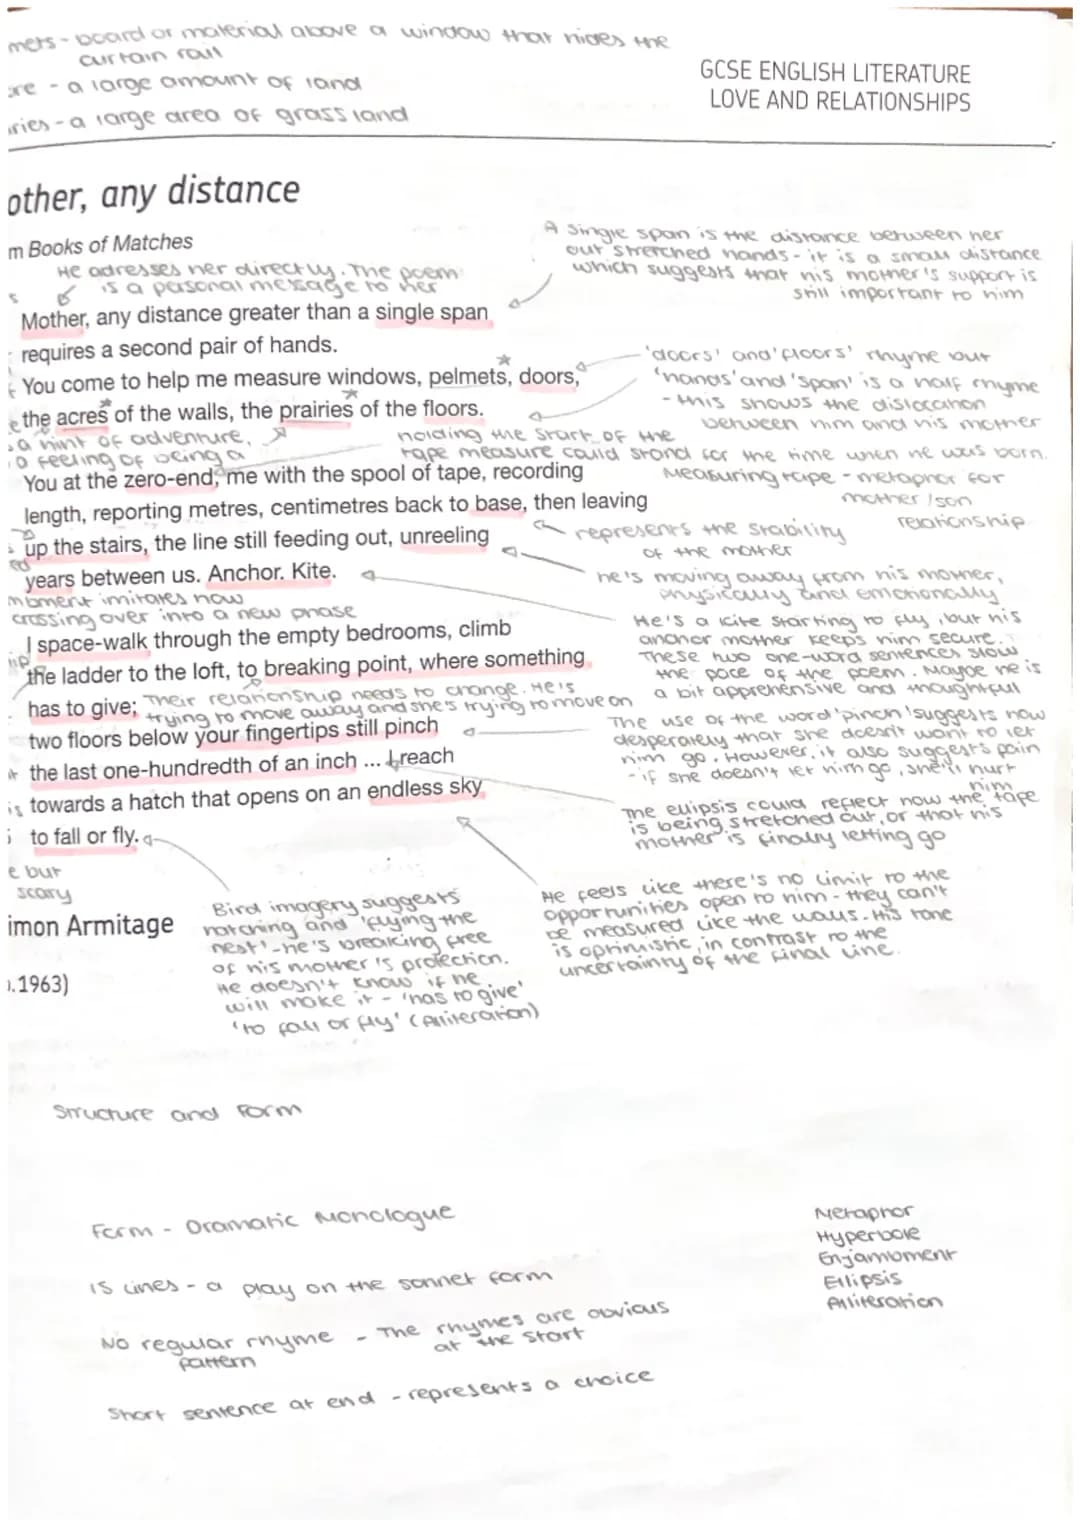 mets - board or material above a window that hides the
curtain rail
cre - a large amount of land
iries - a large area of grassland
GCSE ENGLISH LITERATURE
LOVE AND RELATIONSHIPS
other, any distance
m Books of Matches
He adresses her directly. The poem
is a personal message to her
A single span is the distance between her
out stretched hands - it is a small distance
which suggests that his mother's support is
still important to him
s
Mother, any distance greater than a single span
requires a second pair of hands.
You come to help me measure windows, pelmets, doors,
the acres of the walls, the prairies of the floors.
'doors' and 'floors' rhyme but
'hands' and 'span' is a half rhyme
- this shows the dislocation
between him and his mother
e
a hint of adventure,
a feeling of being a
holding the start of the
tape measure could stand for the time when he was born.
Measuring tape - metaphor for
mother/son
relationship
You at the zero-end, me with the spool of tape, recording
length, reporting metres, centimetres back to base, then leaving
represents the stability
of the mother
up the stairs, the line still feeding out, unreeling
years between us. Anchor. Kite.
ed
he's moving away from his mother,
physically and emotionally
moment imitates how
crossing over into a new phase
He's a kite starting to fly, but his
anchor mother keeps him secure.
These two one-word sentences slow
the pace of the poem. Maybe he is
a bit apprehensive and thoughtful
I space-walk through the empty bedrooms, climb
the ladder to the loft, to breaking point, where something
has to give;
Their relationship needs to change. He's
trying to move away and she's trying to move on
two floors below your fingertips still pinch
the last one-hundredth of an inch ... I reach
towards a hatch that opens on an endless sky
to fall or fly.
The use of the word 'pinch' suggests how
desperately that she doesn't want to let
him go. However, it also suggests pain
- if she doesn't let him go, she'll hurt
him
The ellipsis could reflect how the tape
is being stretched out, or that his
mother is finally letting go
is
e but
scary
imon Armitage
.1963)
Bird imagery suggests
hatching and 'flying the
nest' - he's breaking free
of his mother's protection.
He doesn't know if he
will make it - 'has to give'
'to fall or fly' (Alliteration)
He feels like there's no limit to the
opportunities open to him - they can't
be measured like the walls. His tone
is optimistic, in contrast to the
uncertainty of the final line.
Structure and Form
Form - Dramatic Monologue
15 lines - a play on the sonnet form
No regular rhyme
pattern
- The rhymes are obvious
at the start
Short sentence at end - represents a choice
Metaphor
Hyperbole
Enjambment
Ellipsis
Alliteration